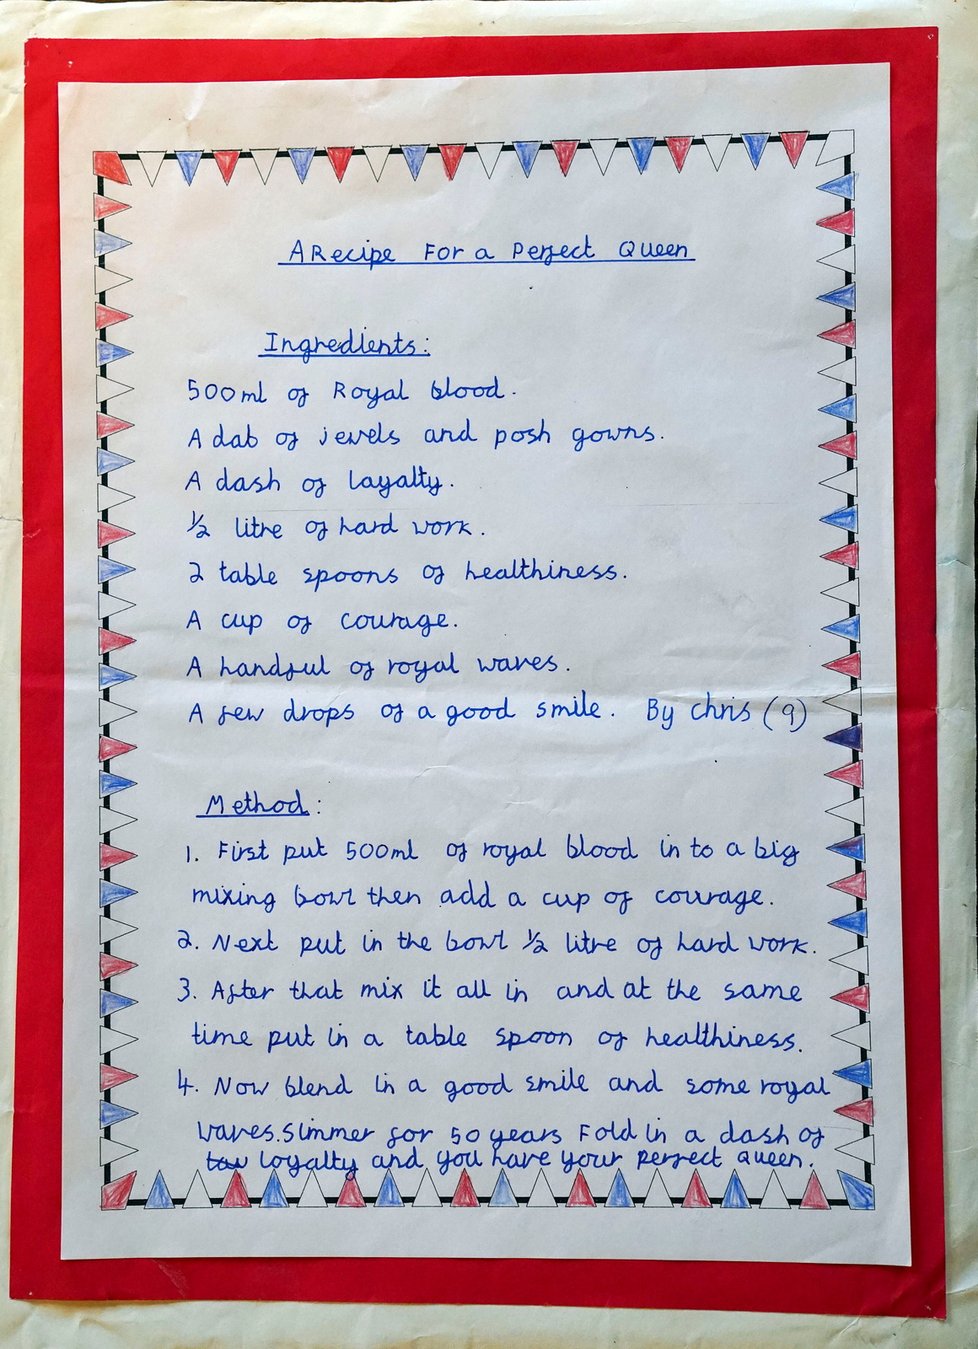 A Recipe For a Perfect Queen
Ingredients:
500ml of Royal blood.
A dab of jewels and posh gowns.
A dash of layalty.
½ litre of hard work.
2 table spoons of healthiness.
A cup of courage.
A handful of royal waves.
A few drops of a good smile. By chris (9)
Method:
1. First put 500ml of royal blood in to a big
mixing bowl then add a cup of courage.
2. Next put in the bowl ½ litre of hard work.
3. After that mix it all in and at the same
time put in a table spoon of healthiness.
4. Now blend in a good smile and some royal
waves. Simmer for 50 years Fold in a dash of
loyalty and you have your perfect queen.